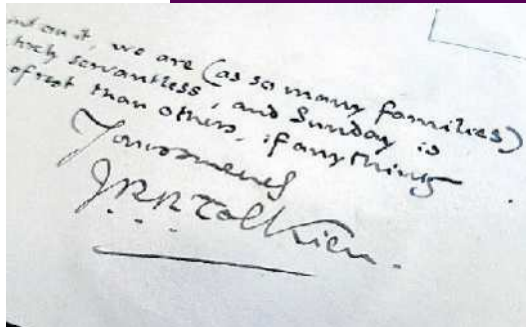 we are (as so many families)
servantless, and Sunday is
of rest than others, if anything
Yours
J.R.R. Tolkien.